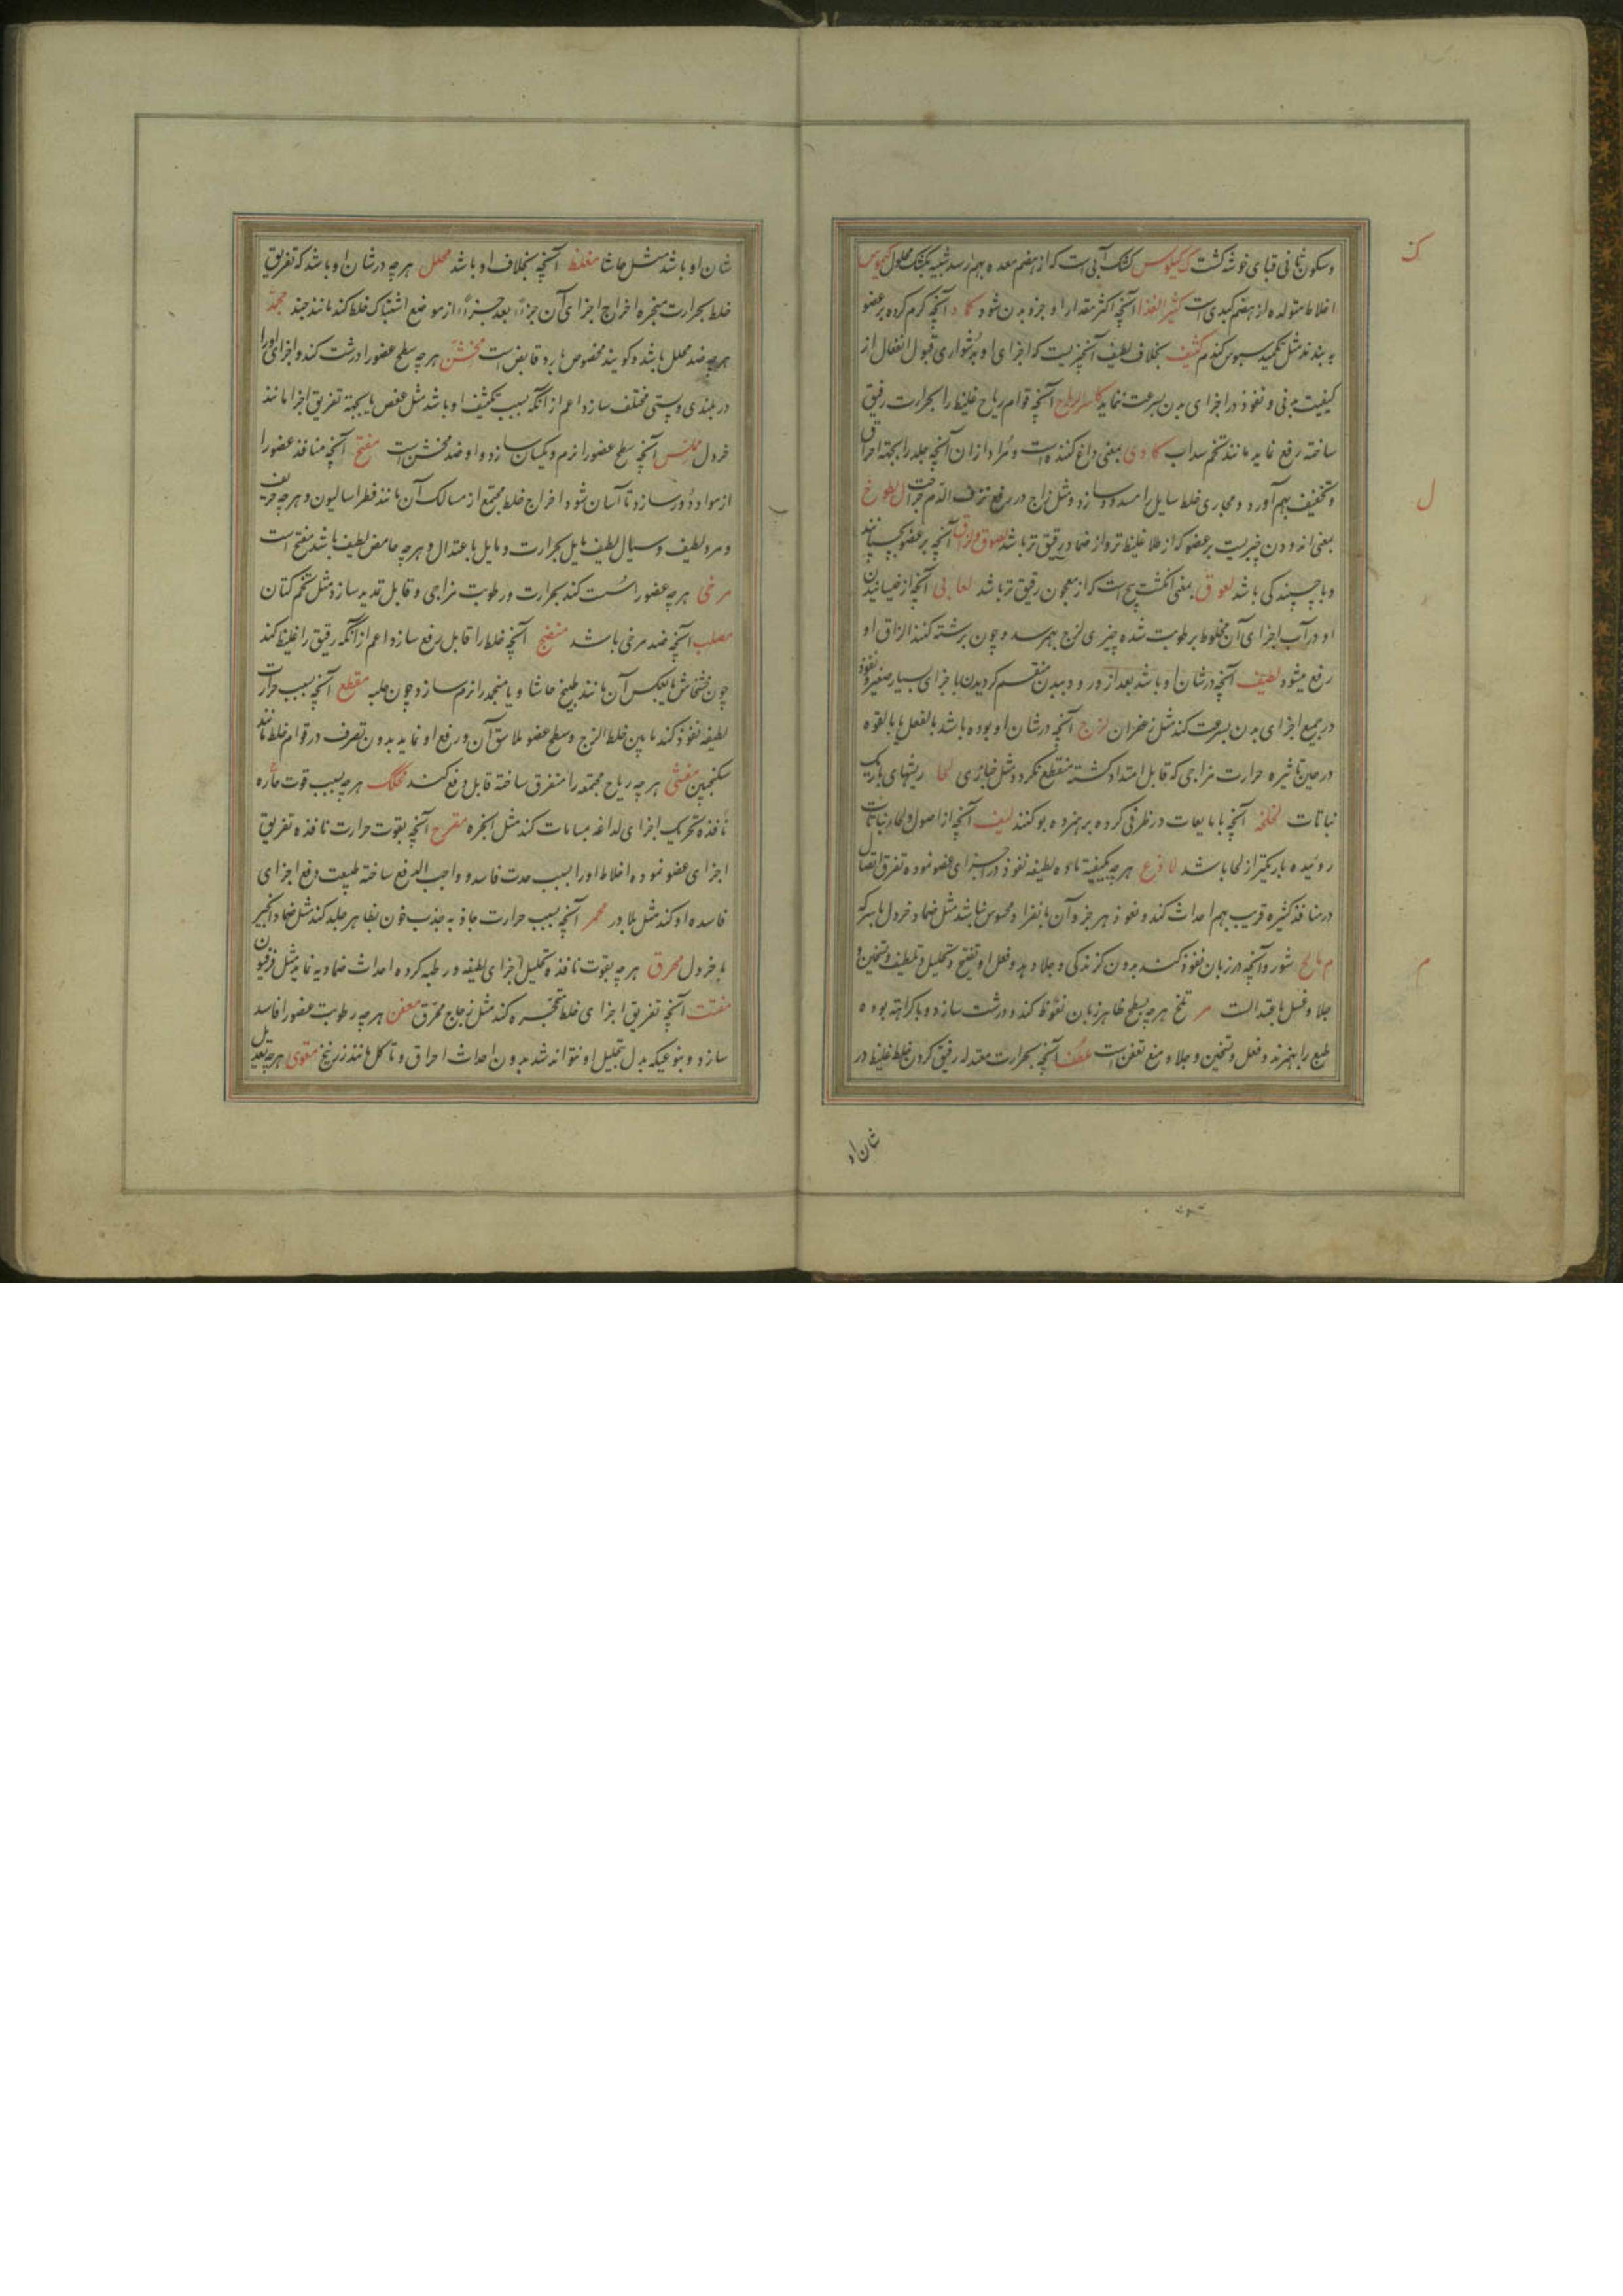 ک
وسکون ثانی قبای خوشه کشت ک کیلوس کشک آبی است که از هضم معده بهم رسد شبیه بکشک محلول کیموس
اخلاط متولده از هضم کبدی است کثیر الغذا آنچه اکثر مقدار او جزو بدن شود کماد آنچه گرم کرده بر عضو
به بندند مثل تکمید سبوس گندم کثیف بخلاف لطیف آنچیزیست که اجزای او بدشواری قبول انفعال از
کیفیت بدنی و نفوذ در اجزای بدن بسرعت ننماید کاسر الریاح آنچه قوام ریاح غلیظ را بحرارت رقیق
ساخته رفع نماید مانند تخم سداب کاوی بمعنی داغ کننده است و مراد از ان آنچه جلد را بجهة احراق
و تخفیف بهم آورد و مجاری خلط سایل را مسدود سازد مثل زاج در رفع نزف الدم جراحت ل لطوخ
ل
بمعنی اندودن چیزیست بر عضو که از طلا غلیظ تر و از ضماد رقیق تر باشد لصوق و لزوق آنچه بر عضو بچسبانند
و با چسپندگی باشد لعوق بمعنی انگشت پیچ است که از معجون رقیق تر باشد لعابی آنچه از خیسانیدن
او در آب اجزای آن مخلوط برطوبت شده چیزی لزج بهم رسد و چون برشته کنند الزاق او
رفع میشود لطیف آنچه در شان او باشد بعد از ورود ببدن منقسم گردیدن باجزای بسیار صغیر و نفوذ
در جمیع اجزای بدن بسرعت کند مثل زعفران لزج آنچه در شان او بوده باشد بالفعل یا بالقوه
در حین تاثیره حرارت مزاجی که قابل امتداد گشته منقطع نگردد مثل خبازی لحا ریشهای باریک
نباتات لخلخه آنچه با مایعات در ظرفی کرده بر هم زده بو کنند لیف آنچه از اصول و لحاء نباتات
روئیده باریکتر از لحا باشد لاذع هر چه بکیفیة حاده لطیفه نفوذ در اجزای عضو نموده تفرق اتصال
در منافذ کثیره قریب بهم احداث کند و نفوذ هر جزو آن بانفراد محسوس نباشد مثل ضماد خردل با سرکه
م مالح شور و آنچه در زبان نفوذ کند بدون گزندگی و جلا دهد و فعل او تفتیح و تحلیل و تلطیف و تسخین و
م
جلا و غسل باعتدالست مر تلخ هر چه بسطح ظاهر زبان نفوذ کند و درشت سازد و با کراهة بوده
طبع را بهم زند و فعل و تسخین و جلا و منع تعفن است ملطف آنچه بحرارت معتدله رقیق کردن خلط غلیظ در
شان او
شان او باشد مثل حاشا مغلظ آنچه بخلاف او باشد محلل هر چه در شان او باشد که تفریق
خلط بحرارت مبخره اخراج اجزای آن جزءًا بعد جزءًا از موضع اشتباک خلط کند مانند جند مجمد
هر چه ضد محلل باشد و گویند مخصوص بارد قابض است مخشن هر چه سطح عضو را درشت کند و اجزای او را
در بلندی و پستی مختلف سازد اعم از آنکه بسبب تکثیف او باشد مثل عفص یا بجهة تفریق اجزا مانند
خردل مملس آنچه سطح عضو را نرم و یکسان سازد و او ضد مخشن است مفتح آنچه منافذ عضو را
از مواد دور سازد تا آسان شود اخراج خلط مجتمع از مسالک آن مانند فطراسالیون و هر چه حریف
و مر و لطیف و سیال لطیف مایل بحرارت و مایل باعتدال و هر چه حامض لطیف باشد مفتح است
مرخی هر چه عضو را سست کند بحرارت و رطوبت مزاجی و قابل تمدید سازد مثل تخم کتان
مصلب آنچه ضد مرخی باشد منضج آنچه خلط را قابل رفع سازد اعم از آنکه رقیق را غلیظ کند
چون خشخاش یا بعکس آن مانند طبیخ حاشا و یا منجمد را نرم سازد چون حلبه مقطع آنچه بسبب حرارت
لطیفه نفوذ کند مابین خلط الزج و سطح عضو ملاسق آن و رفع او نماید بدون تصرف در قوام خلط مانند
سکنجبین مفشی هر چه ریاح مجتمعه را متفرق ساخته قابل رفع کند محکک هر چه بسبب قوت حاره
نافذه تحریک اجزای لذاعه بمسامات کند مثل انجره مقرح آنچه بقوت حرارت نافذه تفریق
اجزای عضو نموده اخلاط او را بسبب حدت فاسد و واجب الدفع ساخته طبیعت دفع اجزای
فاسده او کند مثل بلادر محمر آنچه بسبب حرارت جاذبه جذب خون بظاهر جلد کند مثل ضماد انجیر
با خردل محرق هر چه بقوت نافذه تحلیل اجزای لطیفه و رطبه کرده احداث ضمادیه نماید مثل فرفیون
مفتت آنچه تفریق اجزای خلط متحجره کند مثل زجاج محرق معفن هر چه رطوبت عضو را فاسد
سازد و بنوعیکه بدل بتحلیل او نتواند شد بدون احداث احراق و تاکل مانند زرنیخ مقوی هر چه تعدیل